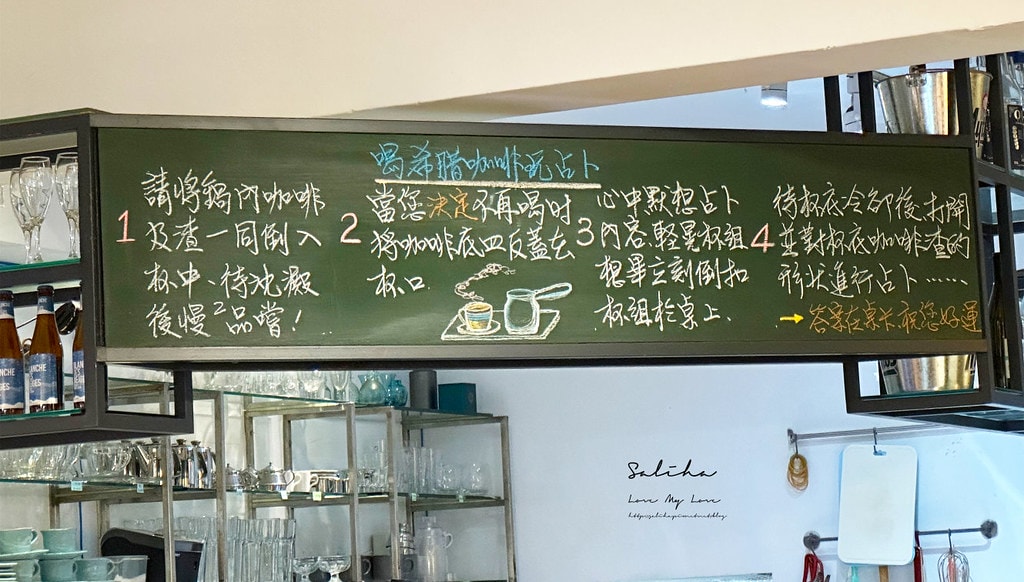 喝希腊咖啡玩占卜
1
請将鍋內咖啡
及渣一同倒入
杯中、待沈澱
後慢慢品嚐!
2
當您決定不再喝时
将咖啡底皿反蓋在
杯口
3
心中默想占卜
內容,輕晃杯組
想畢立刻倒扣
杯組於桌上.
4
待杯底冷卻後,打開
並對杯底咖啡渣的
形狀進行占卜……
→答案在桌卡,祝您好運
Saliha
Love My Love